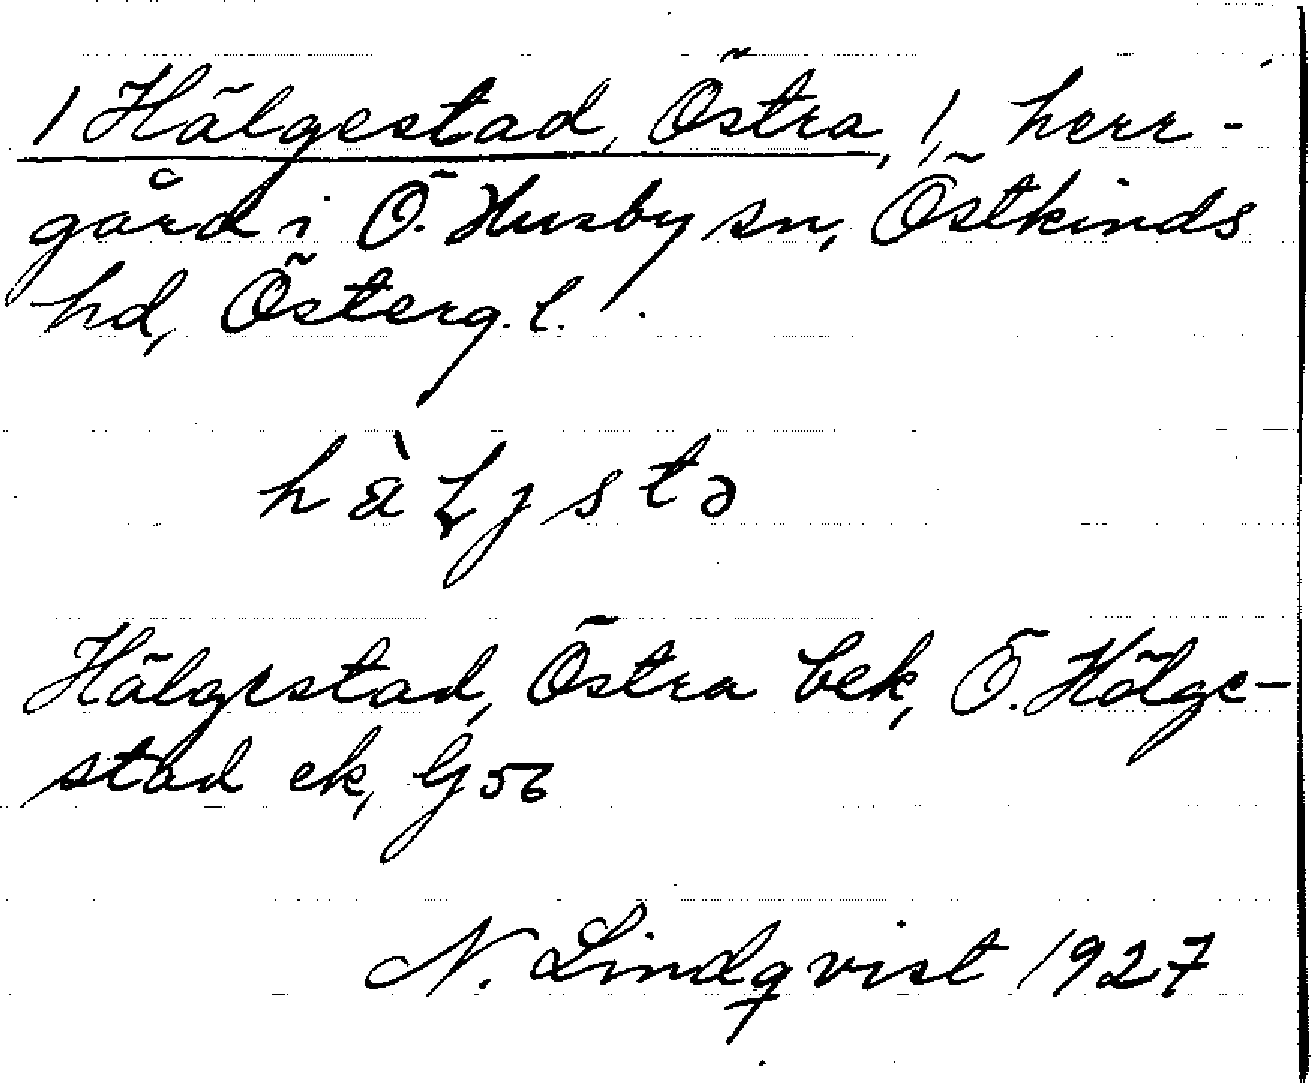 / Hälgestad, Östra, /, herr-
gård i Ö. Husby sn, Östkinds
hd, Österg. l.
hàɫjstə
Hälgestad, Östra bek, Ö. Hölge-
stad ek, G 56
N. Lindqvist 1927